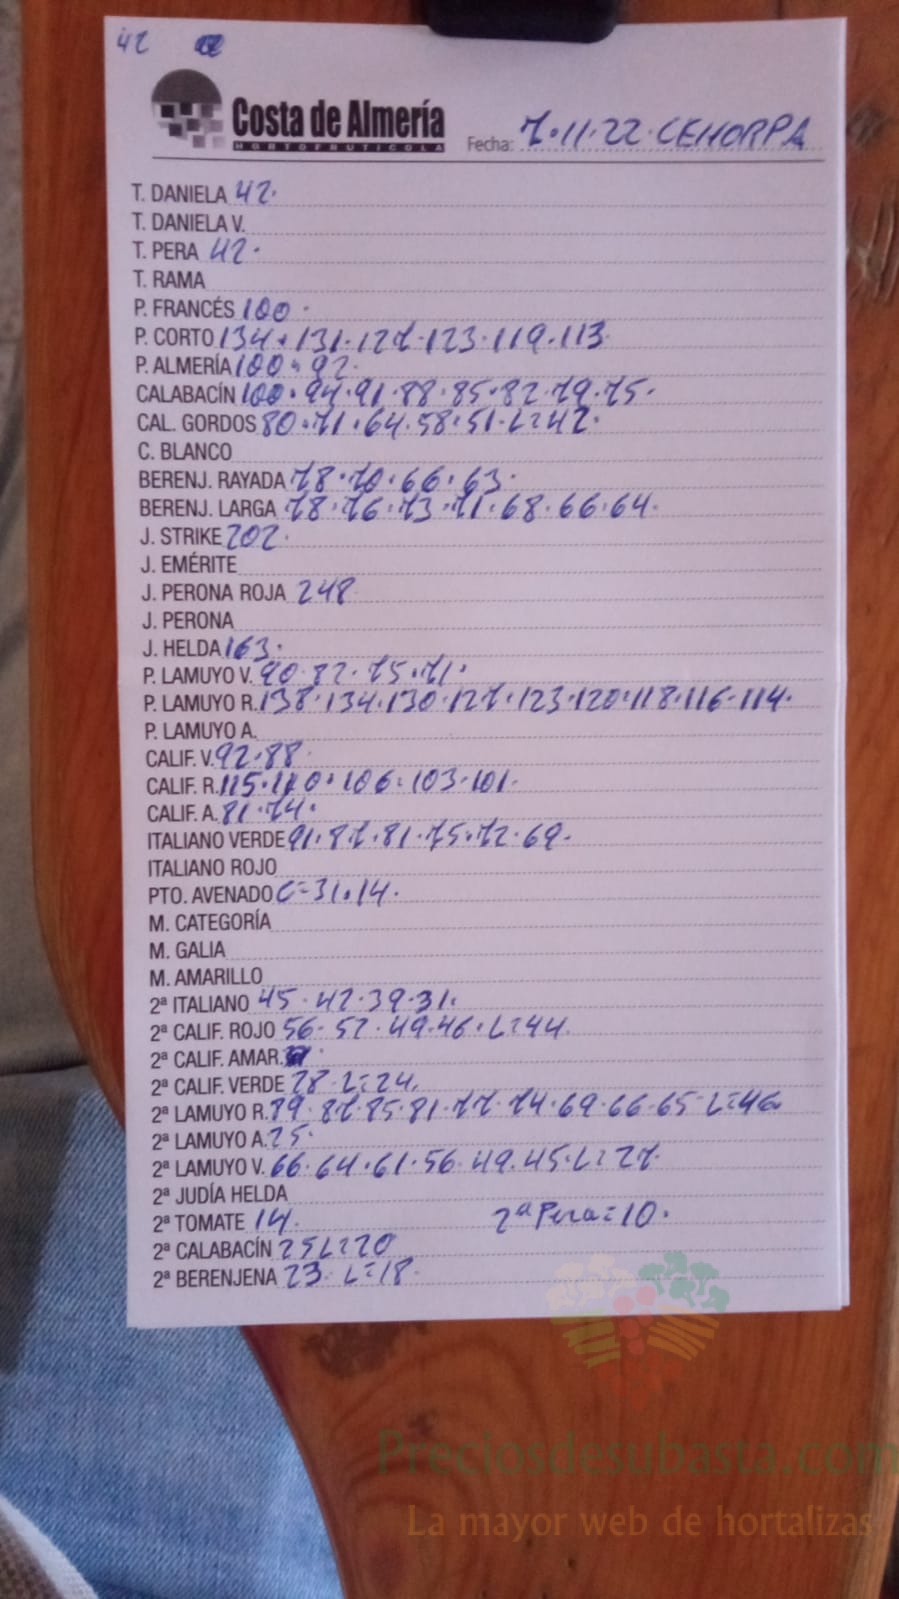 42
Costa de Almería
HORTOFRUTICOLA
Fecha: 7.11.22. CEHORPA
T. DANIELA 42.
T. DANIELA V.
T. PERA 42.
T. RAMA
P. FRANCÉS 100.
P. CORTO 134.131.127.123.119.113
P. ALMERÍA 100.92.
CALABACÍN 100.94.91.88.85.82.79.75.
CAL. GORDOS 80.71.64.58.51.L=42.
C. BLANCO
BERENJ. RAYADA 78.70.66.63.
BERENJ. LARGA 78.76.73.71.68.66.64.
J. STRIKE 202.
J. EMÉRITE
J. PERONA ROJA 248
J. PERONA
J. HELDA 163.
P. LAMUYO V. 90.82.75.71.
P. LAMUYO R. 138.134.130.127.123.120.118.116.114.
P. LAMUYO A.
CALIF. V. 92.88
CALIF. R. 115.110.106.103.101.
CALIF. A. 81.74.
ITALIANO VERDE 91.87.81.75.72.69.
ITALIANO ROJO
PTO. AVENADO C=31.14.
M. CATEGORÍA
M. GALIA
M. AMARILLO
2ª ITALIANO 45.42.39.31.
2ª CALIF. ROJO 56.52.49.46.L=44.
2ª CALIF. AMAR.
2ª CALIF. VERDE 28.L=24.
2ª LAMUYO R. 89.87.85.81.77.74.69.66.65 L=46.
2ª LAMUYO A. 25.
2ª LAMUYO V. 66.64.61.56.49.45.L=27.
2ª JUDÍA HELDA
2ª TOMATE 14. 2ª Pera=10.
2ª CALABACÍN 25 L=20
2ª BERENJENA 23. L=18.
Preciosdesubasta.com
La mayor web de hortalizas